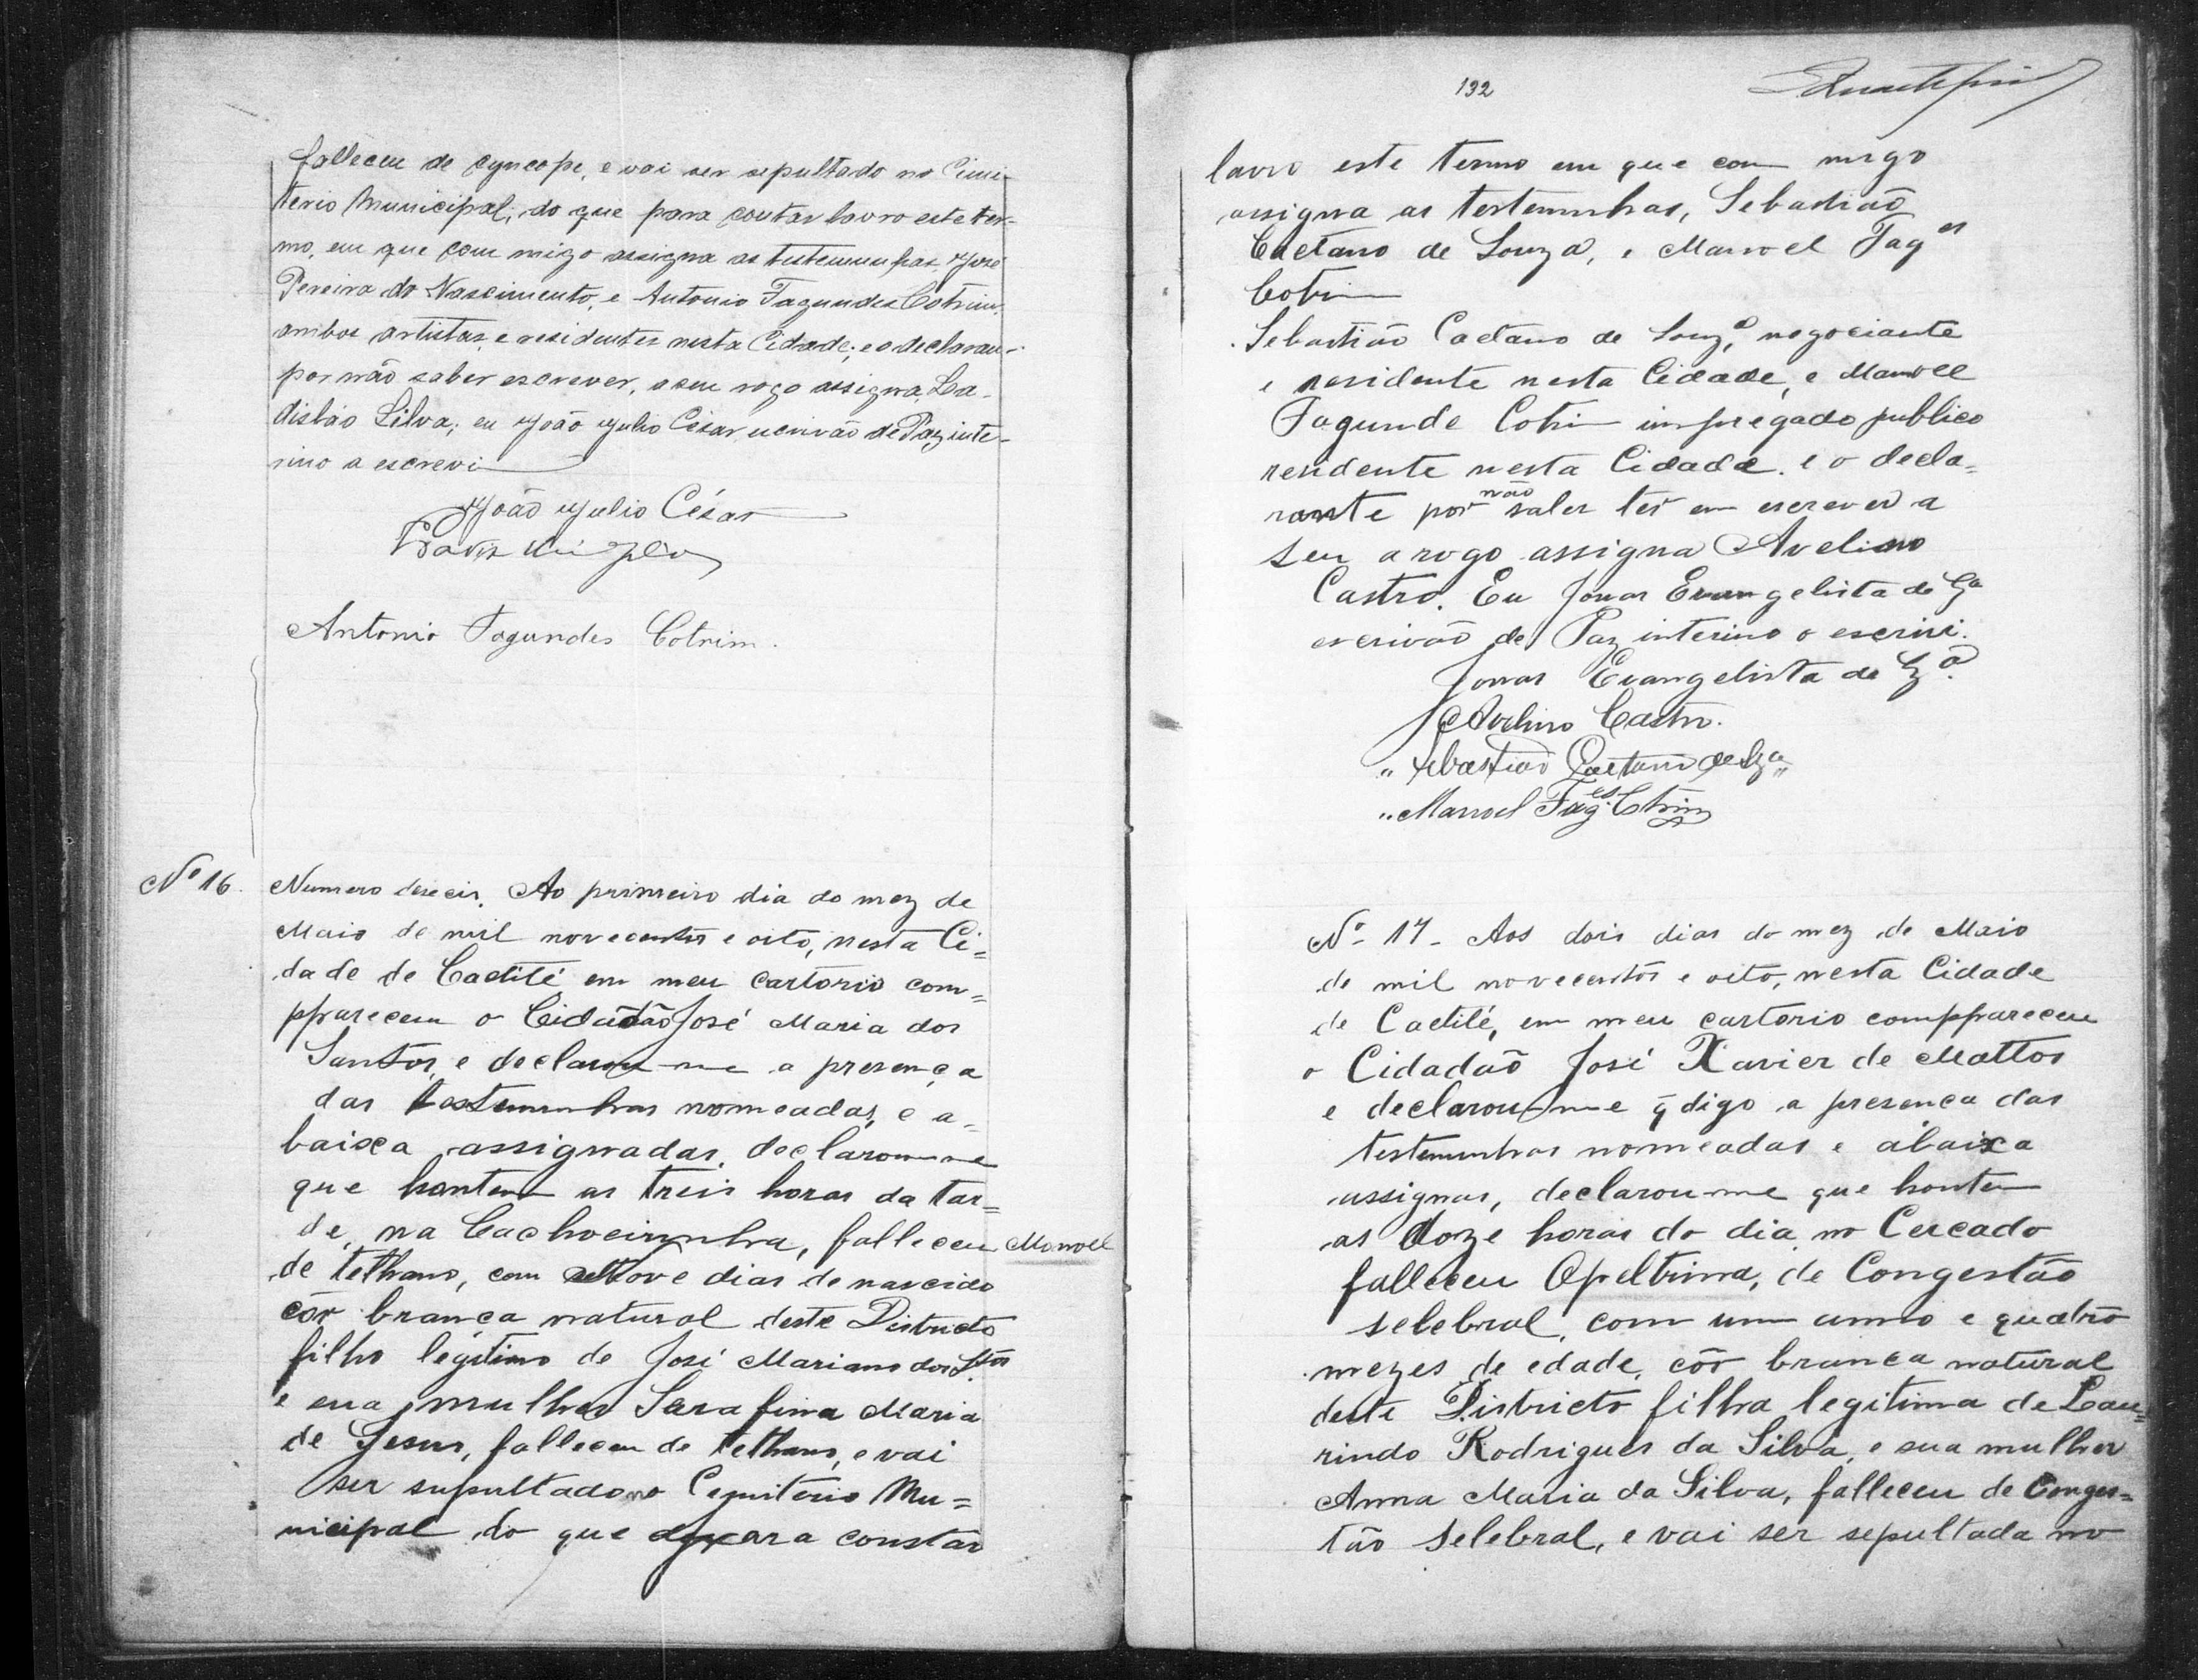 falleceu de cyncope, e vai ser sepultado no Cimi-
terio Municipal; do que para contar lavro este ter-
mo, em que com migo assigna as testemunhas, José
Pereira do Nascimento, e Antonio Fagundes Cotrim,
ambos artistas, e residentes nesta Cidade; e o declaran-
por não saber escrever, a seu rogo assigna, La-
disláo Silva; eu João Julio César, escrivão de Paz inte-
rino a escrevi
João Julio César
Antonio Fagundes Cotrim.
Nº 16.
Numero deseeis. Ao primeiro dia do mez de
Maio de mil novecentos e oito, nesta Ci=
dade de Caetité em meu cartorio com=
ppareceu o Cidadão José Maria dos
Santos, e declarou-me a presença
das testemunhas nomeadas, e a-
baixa assignadas, declarou-me
que hontem as treis horas da tar=
de, na Cachoeirinha, falleceu Manoel
de tethano, com nove dias de nascido
côr branca natural deste Districto
filho legitimo de José Mariano dos Stos
e sua mulher Sarafina Maria
de Jesus, falleceu de tethano, e vai
ser supultado no Cemiterio Mu=
nicipal do que para constar
132
lavro este termo em que com migo
assigna as testemunhas, Sebastião
Caetano de Souza, e Manoel Fages
Cotri
Sebastião Caetano de Souza, negociante
e residente nesta Cidade, e Manoel
Fagunde Cotri impregado publico
residente nesta Cidade. e o decla=
rante por não saber ler em escrever a
seu a rogo assigna Avelino
Castro. Eu Jonas Evangelista de Sza
escrivão de Paz interino o escrivi.
Jonas Evangelista de Sza.
Avelino Castro.
" Sebastião Caetano de Sza "
" Manoel Fages. Cotrim
Nº 17 - Aos dois dias do mez de Maio
de mil novecentos e oito, nesta Cidade
de Caetité, em meu cartorio comppareceu
o Cidadão José Xavier de Mattos
e declarou-me q̃ digo a presença das
testemunhas nomeadas e abaixa
assignas, declarou-me que hontem
as doze horas do dia no Cercado
falleceu Opeltrina, de Congestão
selebral, com um anno e quatro
mezes de edade, côr branca natural
deste Districto filha legitima de Lau=
rindo Rodrigues da Silva, e sua mulher
Anna Maria da Silva, falleceu de Conges=
tão selebral, e vai ser sepultada no